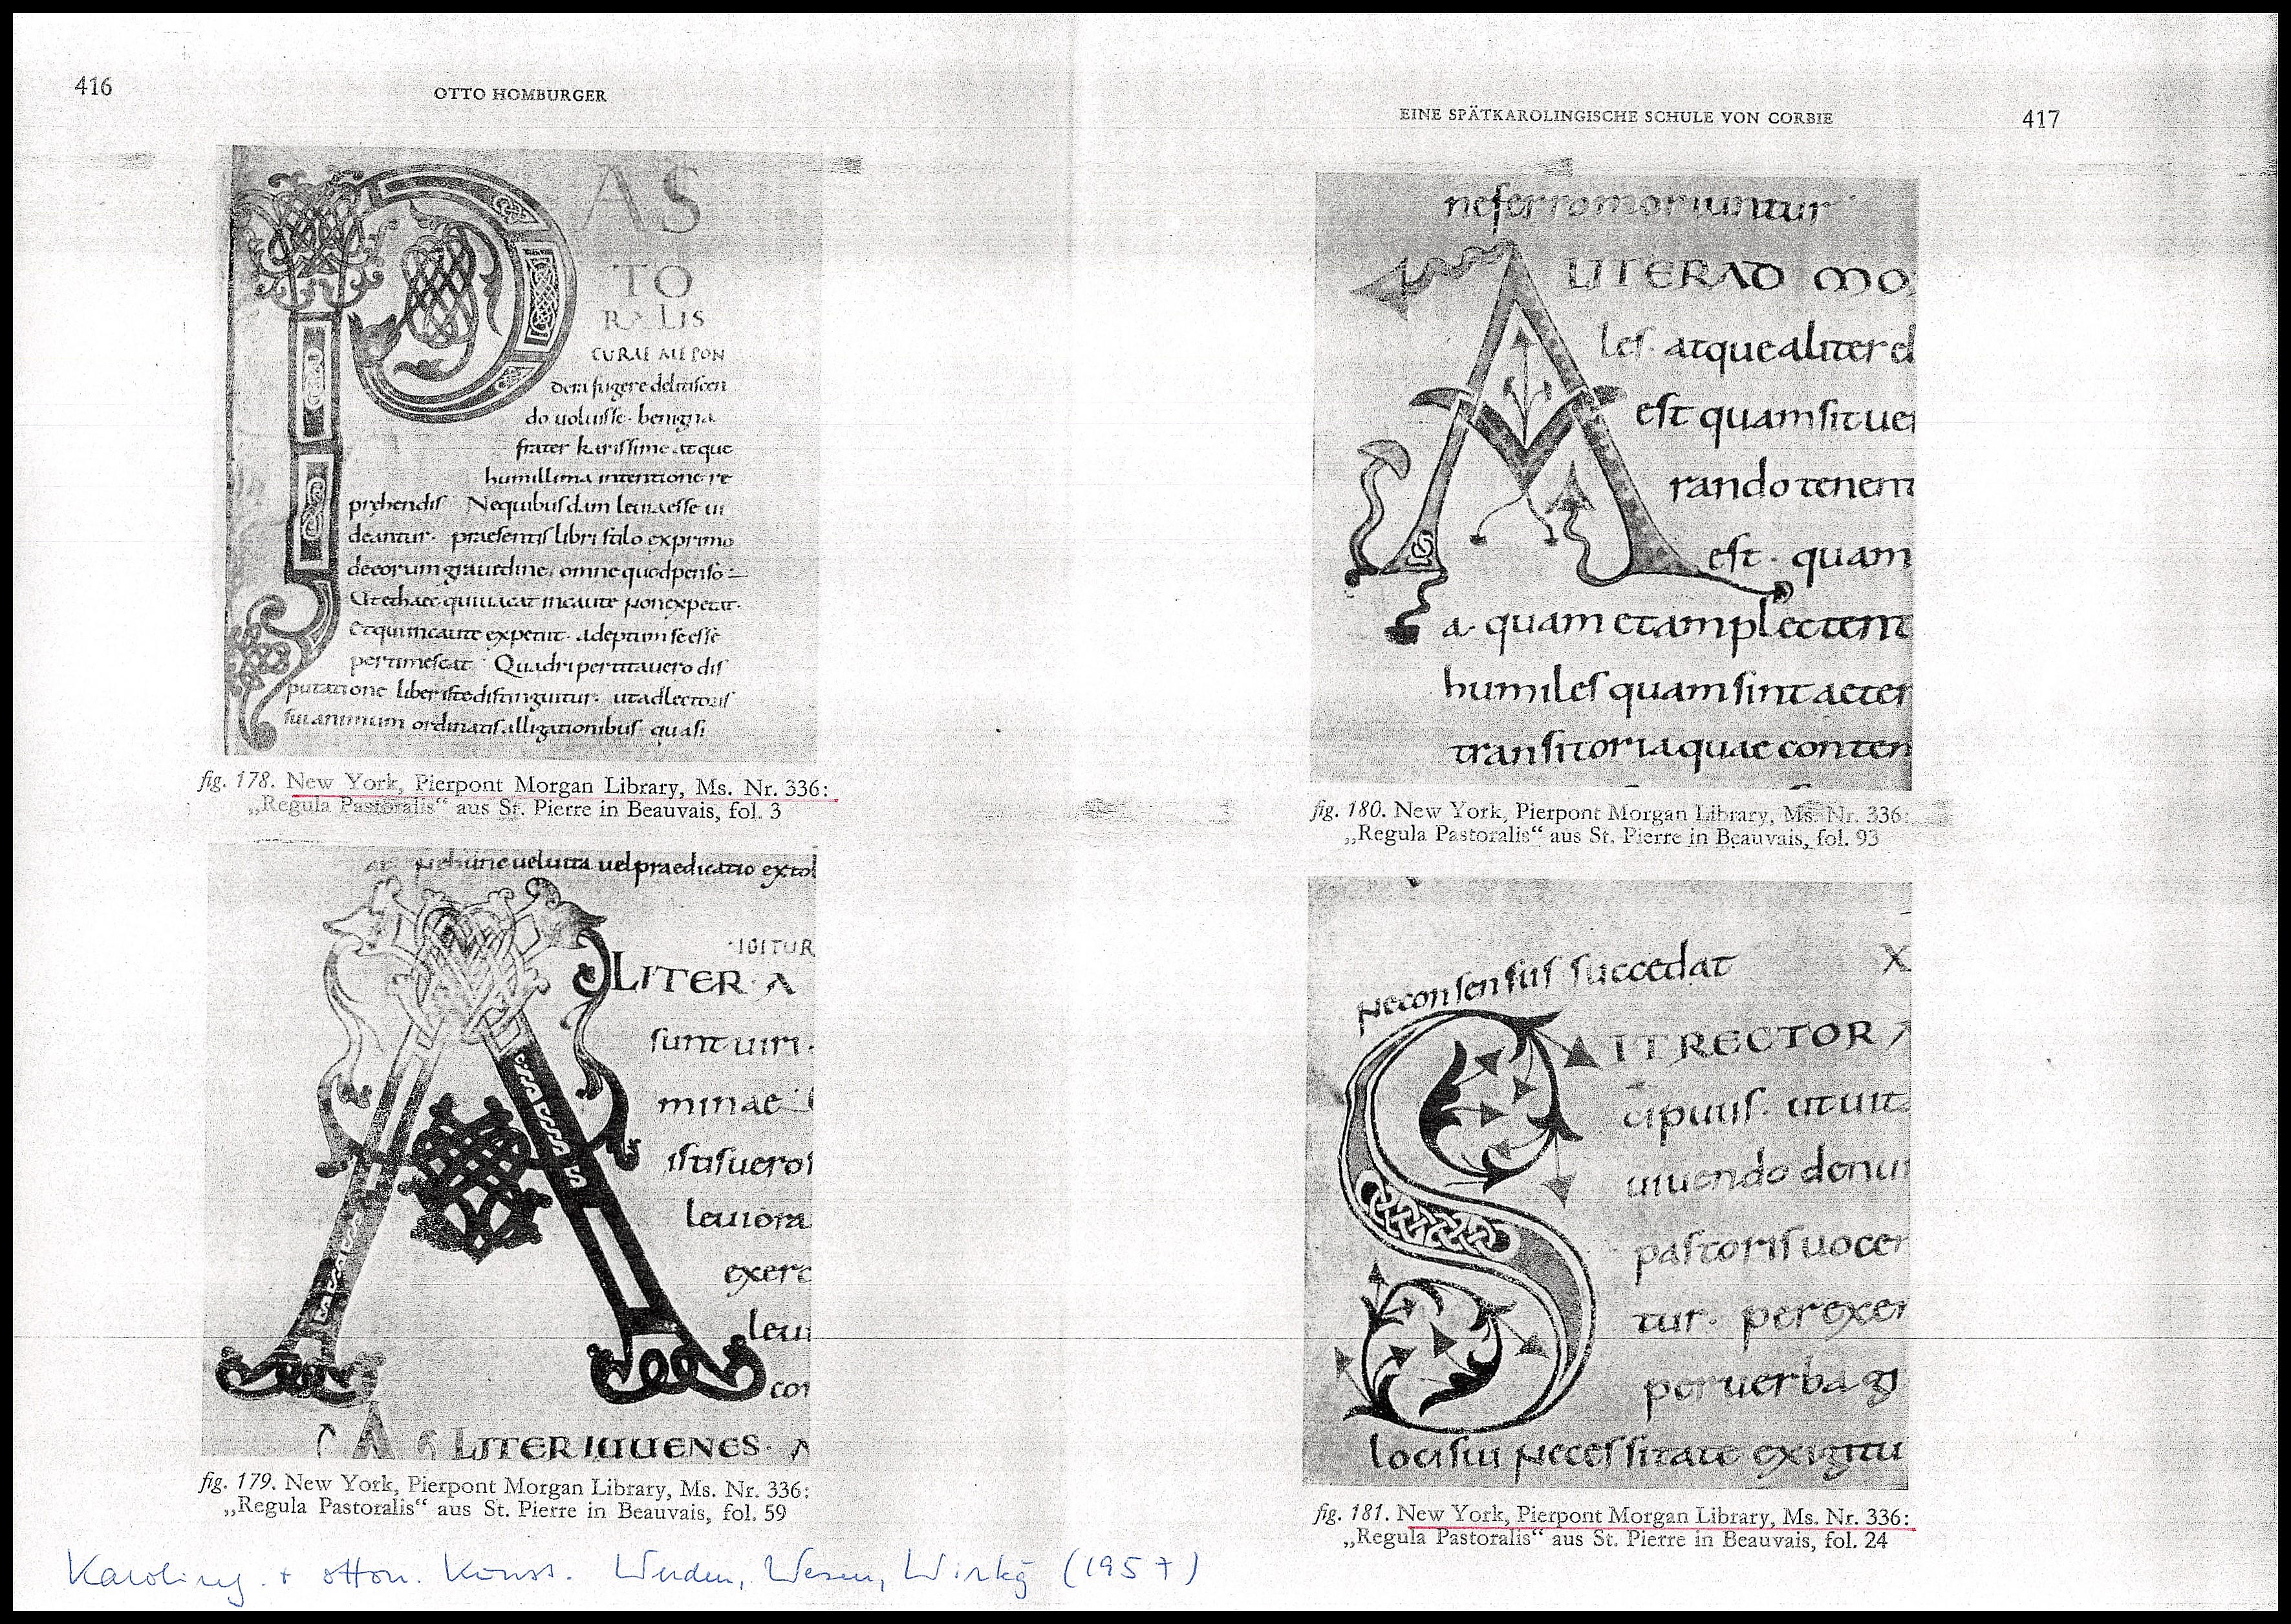 416
OTTO HOMBURGER
AS
TO
RALIS
CURAE ME PON
dera fugere delitiscen
do uoluisse · benigna
frater karissime atque
humillima intentione re
prehendis Nequibusdam leuia esse ui
deantur · praesentis libri stilo exprimo
deeorum grauitdine, omne quod penso
Ut et haec qui uacat incaute non expetat ·
et qui incaute expetiit · adeptum se esse
pertimescat · Quadripertita uero dis
putatione liber iste distinguitur · ut ad lectoris
sui animum ordinatis alligationibus quasi
fig. 178. New York, Pierpont Morgan Library, Ms. Nr. 336:
„Regula Pastoralis“ aus St. Pierre in Beauvais, fol. 3
hunc uel uita uel praedicatio extol
IGITUR
LITER · A
sunt uiri ·
minae
istis uero
leuiora
exerc
leui
con
LITER IUUENES ·
fig. 179. New York, Pierpont Morgan Library, Ms. Nr. 336:
„Regula Pastoralis“ aus St. Pierre in Beauvais, fol. 59
EINE SPÄTKAROLINGISCHE SCHULE VON CORBIE
417
ne ferro moriuntur
A LITER AD MO
les · atque aliter
est quam sit ue
rando tenent
est · quam
a quam et amplectent
humiles quam sint aeter
transitoria quae contem
fig. 180. New York, Pierpont Morgan Library, Ms. Nr. 336:
„Regula Pastoralis“ aus St. Pierre in Beauvais, fol. 93
ne consensus succedat X
S IT RECTOR
cipuus · ut uita
uiuendo denun
pastoris uocem
tur · per exem
per uerba
loci sui necessitate exigitu
fig. 181. New York, Pierpont Morgan Library, Ms. Nr. 336:
„Regula Pastoralis“ aus St. Pierre in Beauvais, fol. 24
Karoling. + otton. Kunst. Werden, Wesen, Wirkg (1957)